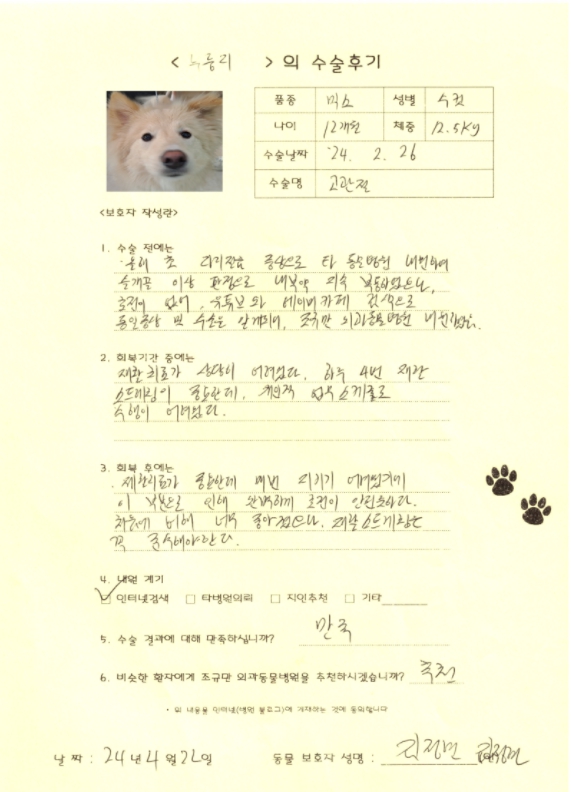 < 누룽지 > 의 수술후기
품종 믹스 성별 수컷
나이 12개월 체중 12.5Kg
수술날짜 '24. 2. 26
수술명 고관절
<보호자 작성란>
1. 수술 전에는
· 올해 초 다리절음 증상으로 타 동물병원 내방하여
슬개골 이상 판정으로 내복약 계속 복용하였으나,
호전이 없어, 유튜브와 네이버카페 검색으로
동일증상 및 수술을 알게되어, 조규만 외과동물병원 내원하였음.
2. 회복기간 중에는
재활치료가 상당히 어려웠다. 하루 4번 재활
스트레칭이 중요한데, 개인적 업무 스케줄로
수행이 어려웠다.
3. 회복 후에는
. 재활치료가 중요한데 매번 지키기 어려웠기에
이 부분으로 인해 완벽하게 호전이 안되었다.
처음에 비해 너무 좋아졌으나, 재활 스트레칭은
꼭 준수해야한다.
4. 내원 계기
☑ 인터넷검색 □ 타병원의뢰 □ 지인추천 □ 기타
5. 수술 결과에 대해 만족하십니까? 만족
6. 비슷한 환자에게 조규만 외과동물병원을 추천하시겠습니까? 추천
* 위 내용을 인터넷(병원 블로그)에 게재하는 것에 동의합니다
날 짜 : 24 년 4 월 22 일 동물 보호자 성명 :